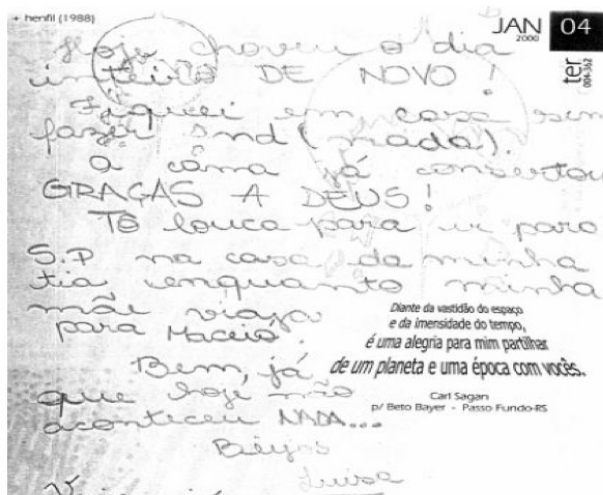 + henfil (1988)
JAN 04
2000
ter
004-362
Hoje choveu o dia
inteiro DE NOVO!
Fiquei em casa sem
fazer nd (nada).
a câma já consertou
GRAÇAS A DEUS!
Tô louca para ir para
S.P na casa da minha
tia enquanto minha
mãe viaja
para Maceió.
Bem, já
que hoje não
aconteceu NADA...
Beijos
Luisa
Diante da vastidão do espaço
e da imensidade do tempo,
é uma alegria para mim partilhar
de um planeta e uma época com vocês.
Carl Sagan
p/ Beto Bayer - Passo Fundo-RS